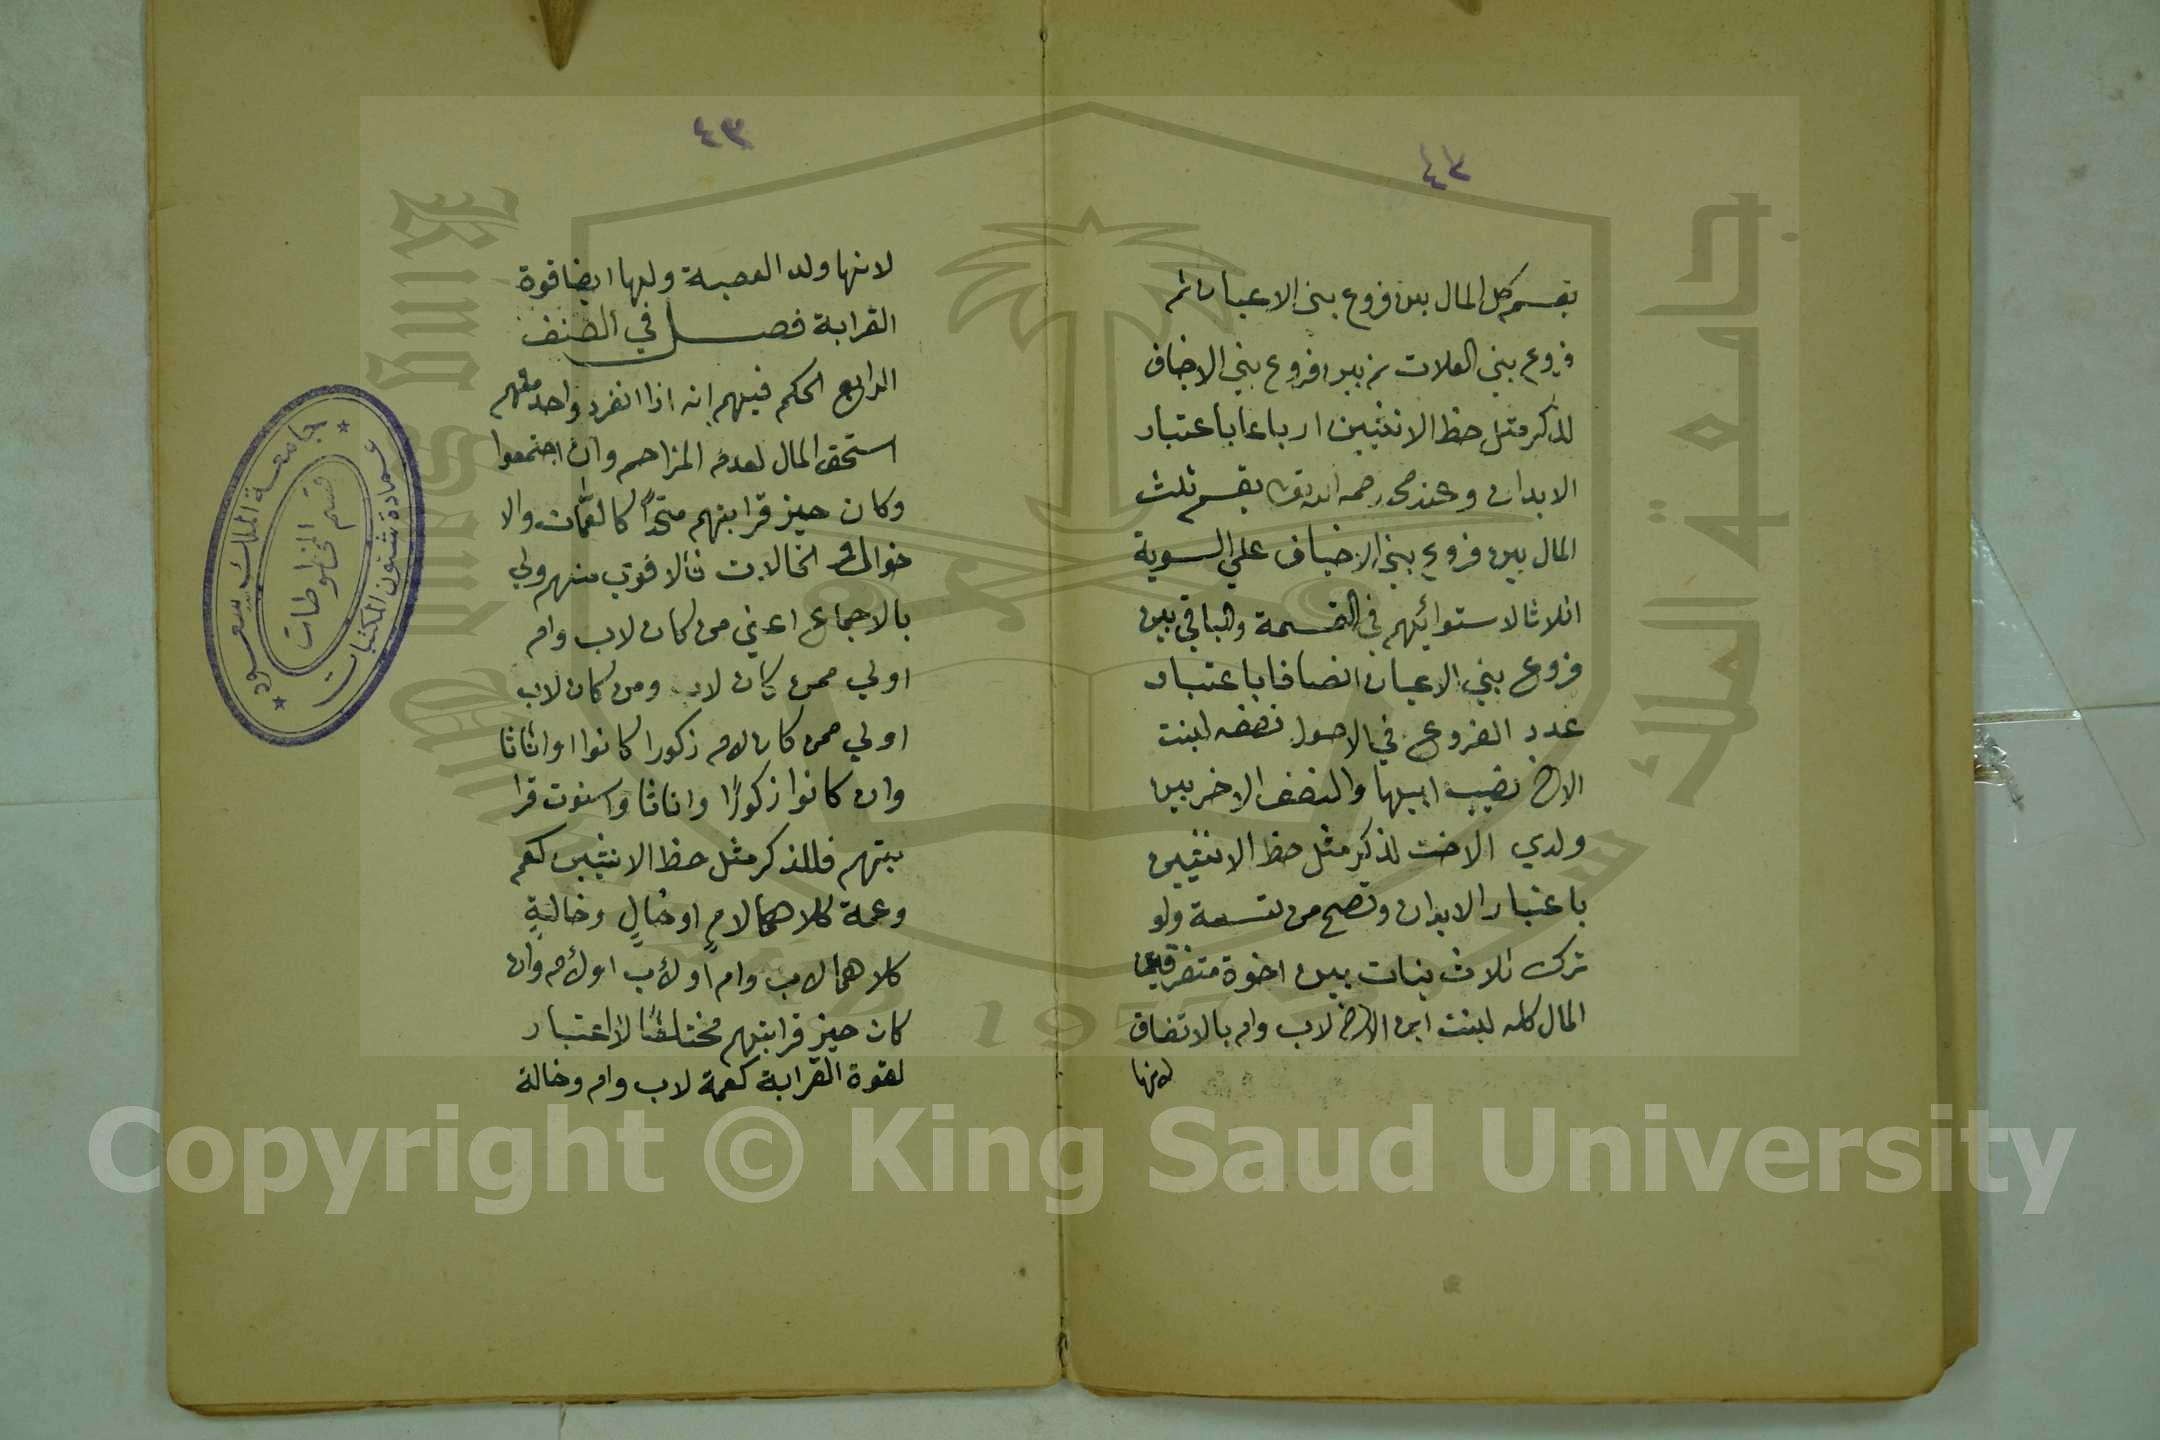 ٤٢
يقسم كل المال بين فروع بني الاعيان ثم
فروع بني العلات ثم بين فروع بني الاخياف
للذكر مثل حظ الانثيين ارباعا باعتبار
الابدان وعند محمد رحمه الله تعالى يقسم ثلث
المال بين فروع بني الاخياف علي السوية
اثلاثا لاستوائهم في القسمة والباقي بين
فروع بني الاعيان انصافا باعتبار
عدد الفروع في الاصول نصفه لبنت
الاخ نصيب ابيها والنصف الاخر بين
ولدي الاخت للذكر مثل حظ الانثيين
باعتبار الابدان وتصح من تسعة ولو
ترك ثلاث بنات بين اخوة متفرقين
المال كله لبنت ابن الاخ لاب وام بالاتفاق
لانها
٤٣
لانها ولد العصبة ولها ايضا قوة
القرابة فصل في الصنف
الرابع الحكم فيهم انه اذا انفرد واحد منهم
استحق المال لعدم المزاحم وان اجتمعوا
وكان حيز قرابتهم متحدًا كالعمّات والا
خوال والخالات فالاقوى منهم ولي
بالاجماع اعني من كان لاب وام
اولي ممن كان لاب ومن كان لاب
اولي ممن كان لام ذكورا كانوا او اناثا
وان كانوا ذكورًا واناثا واستوت قرا
بتهم فللذكر مثل حظ الانثيين كعم
وعمة كلاهما لامٍ او خالٍ وخالةٍ
كلاهما لاب وام او لأب او لأم وان
كان حيز قرابتهم مختلفًا لا اعتبار
لقوة القرابة كعمة لاب وام وخالة
جامعة الملك سعود
عمادة شئون المكتبات
قسم المخطوطات
جامعة الملك سعود
King Saud University
1957
Copyright © King Saud University